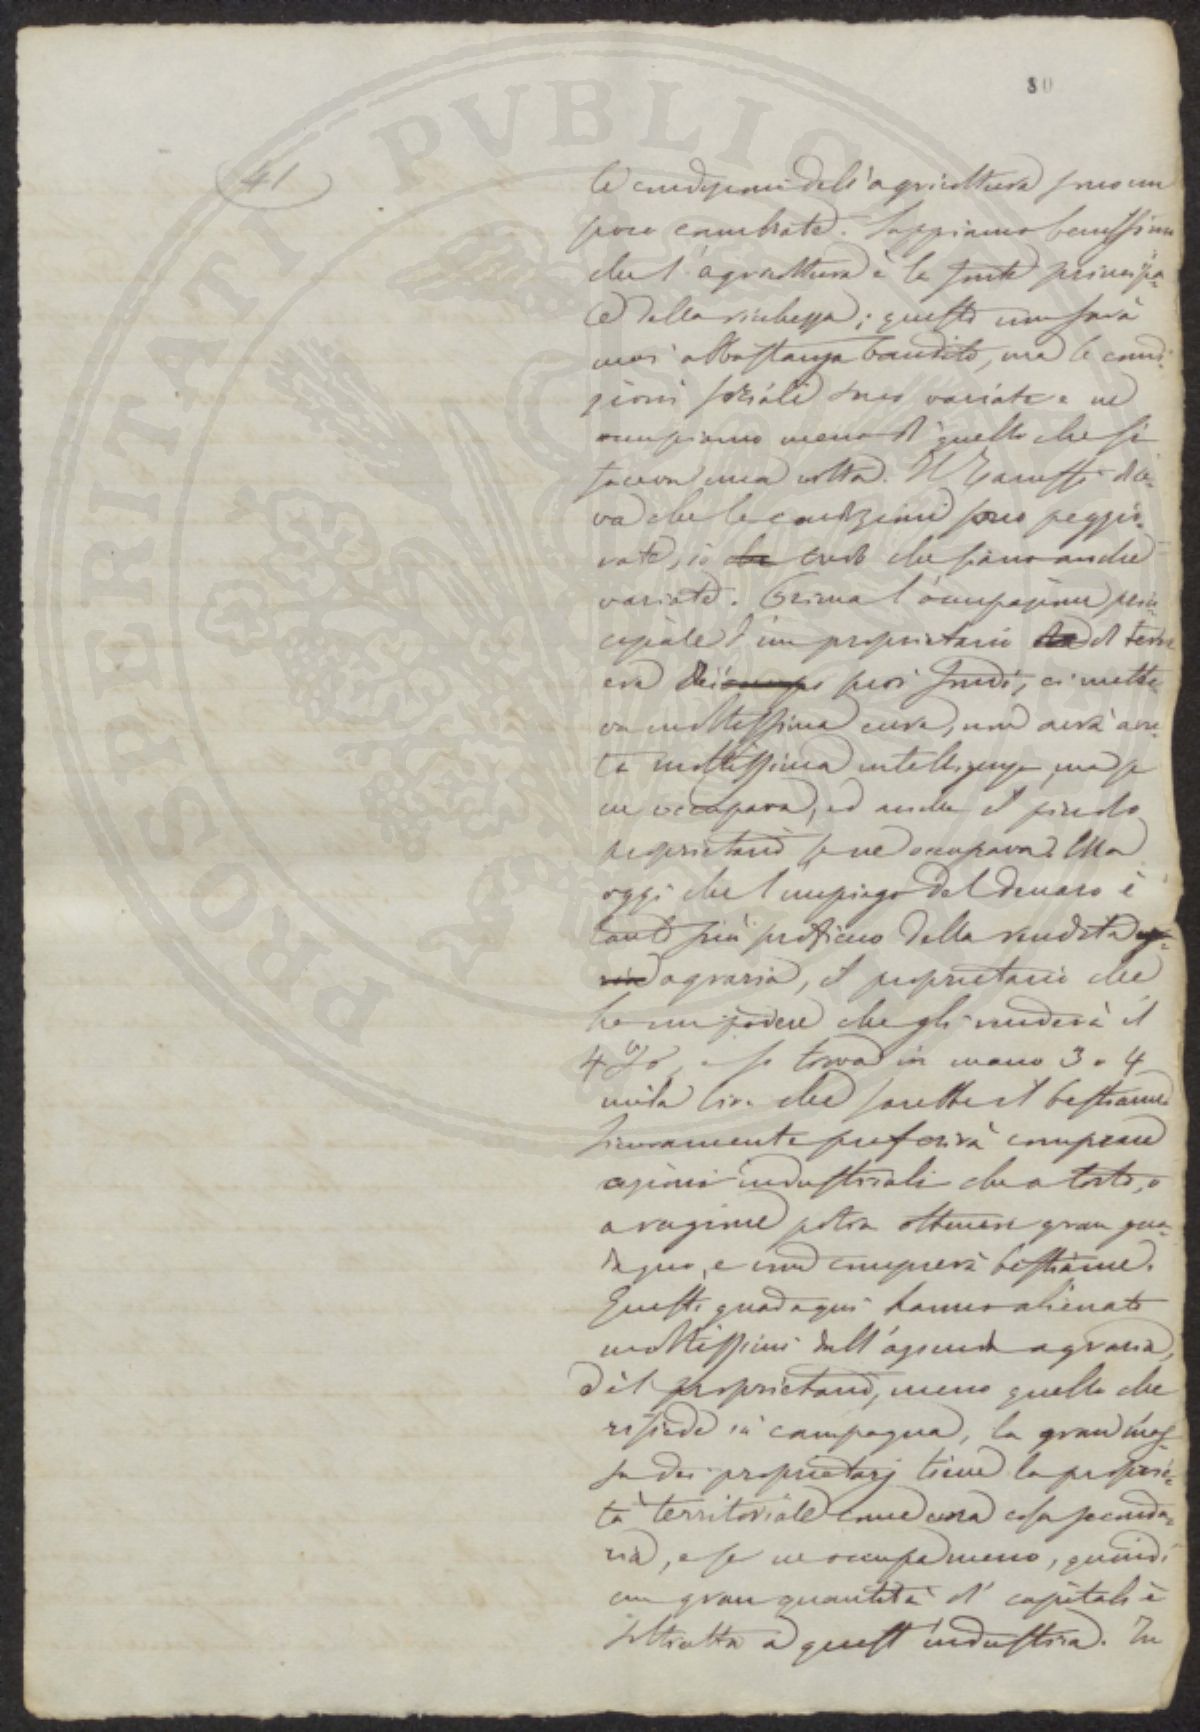 80
41
le condizioni dell'agricoltura sono un
poco cambiate. Sappiamo benissimo
che l'agricoltura è la fonte principa-
le della ricchezza; questo non sarà
mai abbastanza bandito, ma le condi-
zioni sociali sono variate e ne
occupiamo meno di quello che si
faceva una volta. Il Zanuffi dice-
va che le condizioni sono peggio-
rate, io che credo che siano anche
variate. Prima l'occupazione prin-
cipale d'un proprietario di terre
era dei suoi fondi, ci mette-
va moltissima cura, non avrà avu-
ta moltissima intelligenza ma se
ne occupava, ed anche il piccolo
proprietario se ne occupava. Ma
oggi che l'impiego del denaro è
tanto più proficuo della rendita
agraria, il proprietario che
ha un podere che gli renderà il
4 %, e si trova in mano 3 o 4
mila lire che sarebbe il bestiame
sicuramente preferirà comprare
azioni industriali che a torto, o
a ragione potrà ottenere gran gua-
dagno, e non comprerà bestiame.
Questi guadagni hanno alienato
moltissimi dall'azienda agraria,
ed il proprietario, meno quello che
risiede in campagna, la gran mas-
sa dei proprietarj tiene la proprie-
tà territoriale come una cosa seconda-
ria, e se ne occupa meno, quindi
una gran quantità di capitali è
sottratta a quest'industria. In
PROSPERITATI PVBLIC